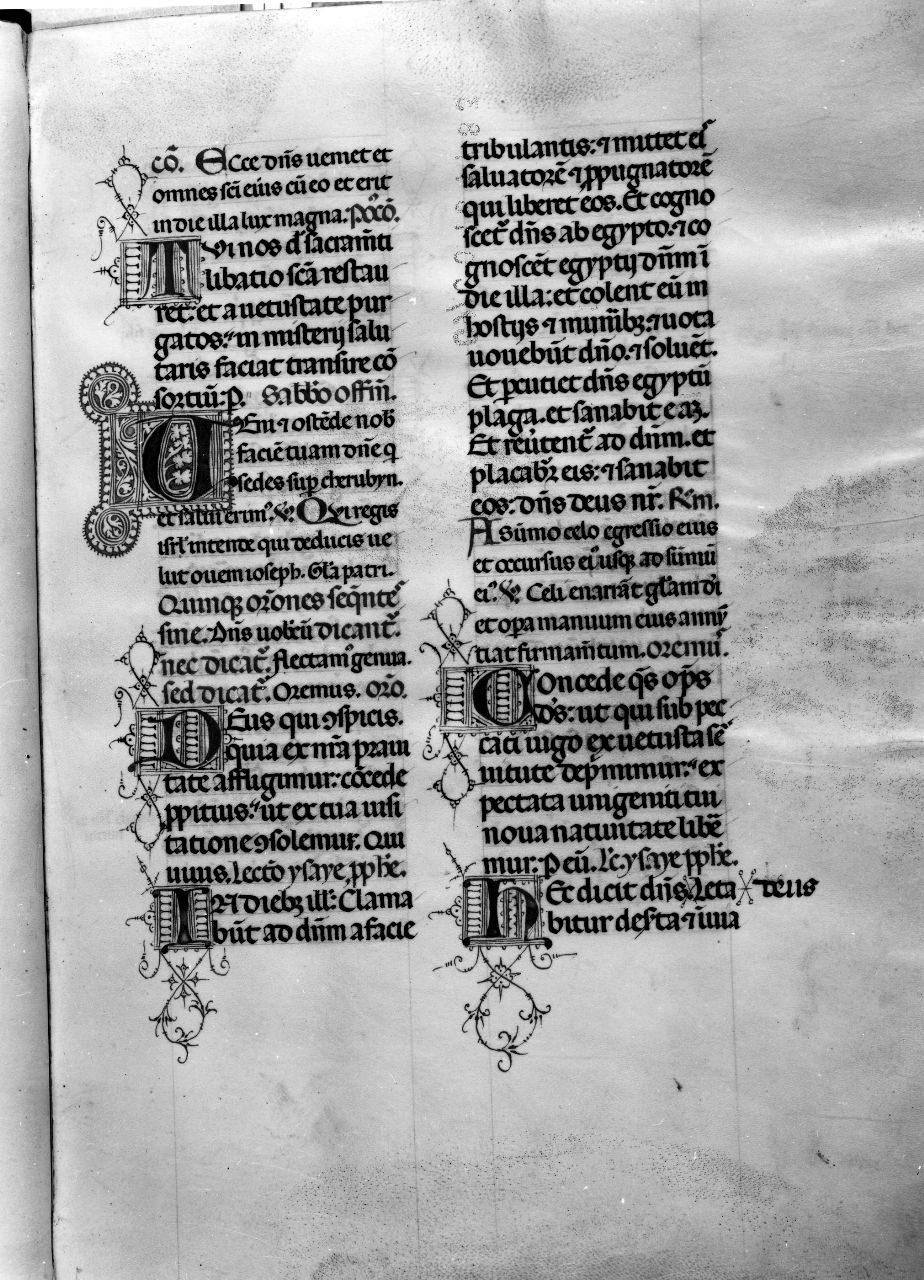 cō. Ecce dñs ueniet et
omnes scī eius cū eo et erit
in die illa lux magna. Pꝰcō.
TVi nos dˢ sacram̄ti
libatio scā restau
ret: et a uetustate pur
gatos: in misterij salu
taris faciat transire cō
sortiū: P. Sabb̄o offm̄.
UEni ⁊ ostēde nob̄
faciē tuam dn̄e q̄
sedes sup̄ cherubyn.
et salui erimꝰ. ℣. QVi regis
isrl̄ intende qui deducis ue
lut ouem ioseph. Gl̄a patri.
Quinqꝫ or̄ones seq̄nteˢ
sine. Dn̄s uobcū dicant̄.
nec dicat̄. flectamꝰ genua.
sed dicat̄. Oremus. Or̄o.
DEus qui ꝯspicis.
quia ex nr̄a praui
tate affligimur: cōcede
ꝓpitius: ut ex tua uisi
tatione ꝯsolemur. Qui
uiuis. Lectō ysaye ꝓph̄e.
IN diebꝫ ill̄: Clama
būt ad dn̄m a facie
tribulantis: ⁊ mittet eiˢ
saluatorē ⁊ ꝓpugnatorē
qui liberet eos. Et cogno
scet̄ dn̄s ab egypto: ⁊ co
gnoscēt egyptij dn̄m ī
die illa: et colent eū in
hostijs ⁊ munīibꝫ: ⁊ uota
uouebūt dn̄o: ⁊ soluēt.
Et ꝑcutiet dn̄s egyptū
plaga. et sanabit eaꝫ.
Et reūtent̄ ad dn̄m. et
placabr̄ eis: ⁊ sanabit
eos: dn̄s deus nr̄. Rm̄.
A Sūmo celo egressio eius
et occursus eiꝰ usqꝫ ad sūmū
eiꝰ. ℣. Celi enarrāt gl̄am dī
et opera manuum eius annū
tiat firmam̄tum. Oremuˢ.
COncede q̄s op̄s
dˢ: ut qui sub pec
cati iugo ex uetusta seˢ
uitute dep̄mimur: ex
pectata unigeniti tui
noua natiuitate libē
mur: P eū. Lc̄ ysaye ꝓph̄e.
HEc dicit dn̄s Leta deus
bitur deserta ⁊ īuia